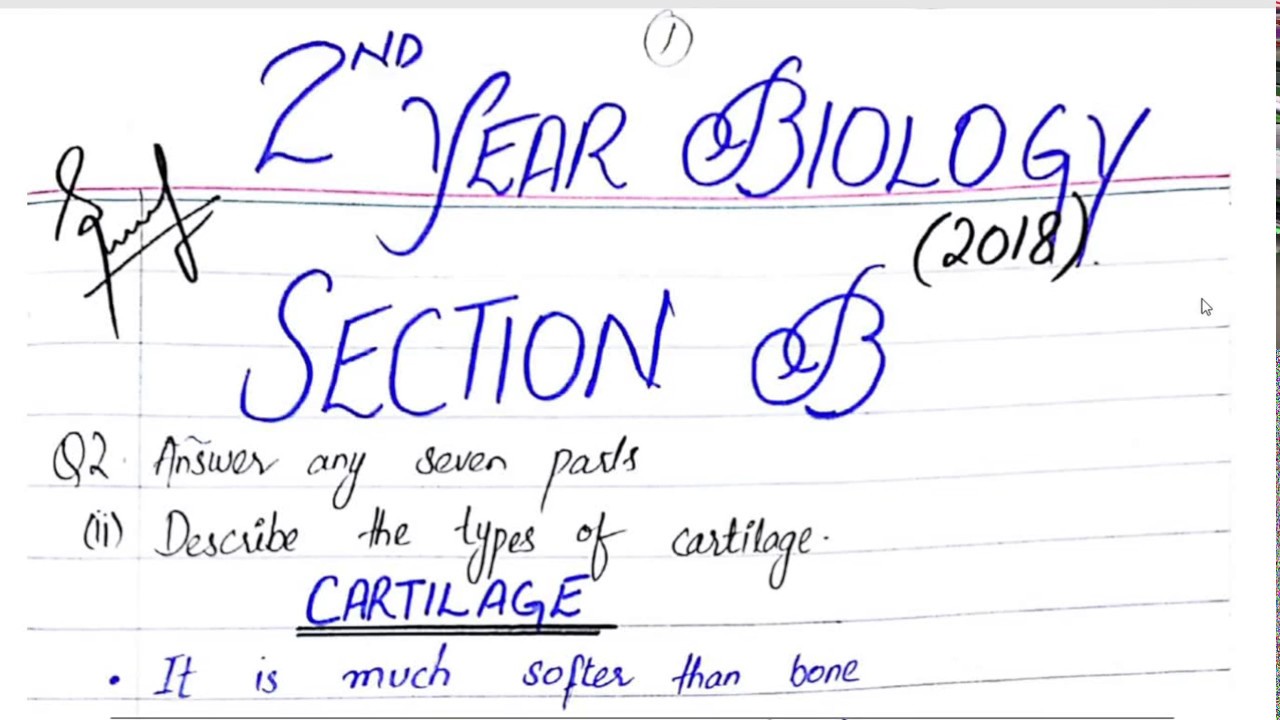 1
2ND YEAR BIOLOGY
(2018).
SECTION B
Q2. Answer any seven parts
(ii) Describe the types of cartilage.
CARTILAGE
• It is much softer than bone